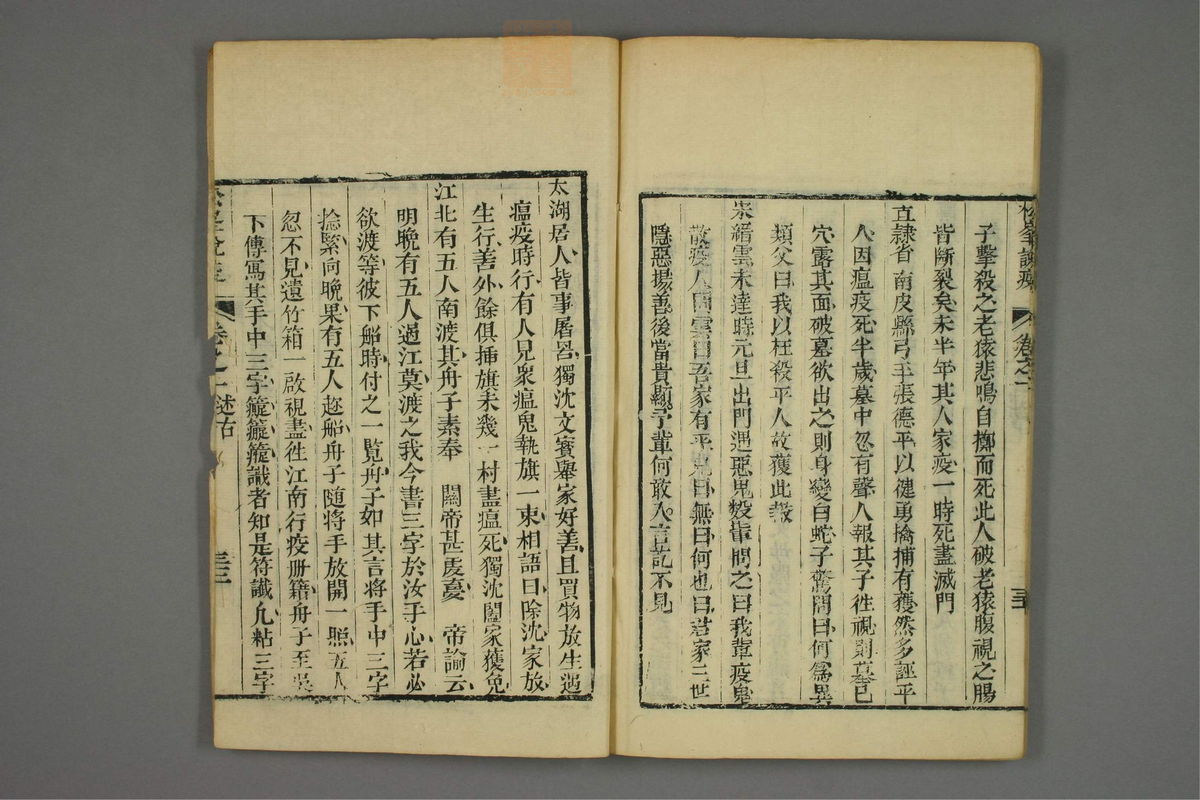 松峯說疫
卷之一
三十
子擊殺之老猿悲鳴自擲而死此人破老猿腹視之腸
皆斷裂矣未半年其人家疫一時死盡滅門
直隸省南皮縣弓手張德平以健勇擒捕有獲然多誣平
人因瘟疫死半歲墓中忽有聲人報其子徃視則墓已
穴露其面破墓欲出之則身變白蛇子驚問曰何爲異
類父曰我以枉殺平人故獲此報
宋縉雲未達時元旦出門遇惡鬼數軰問之曰我軰疫鬼
散疫人間雲曰吾家有乎鬼曰無曰何也曰君家三世
隱惡揚善後當貴顯予軰何敢入言訖不見
太湖居人皆事屠罟獨沈文寳舉家好善且買物放生遇
瘟疫時行有人見衆瘟鬼執旗一束相語曰除沈家放
生行善外餘俱揷旗未幾一村盡瘟死獨沈闔家獲免
江北有五人南渡其舟子素奉 關帝甚虔憂 帝諭云
明晚有五人過江莫渡之我今書三字於汝手心若必
欲渡等彼下船時付之一覽舟子如其言將手中三字
捻緊向晚果有五人趂船舟子随將手放開一照五人
忽不見遺竹箱一啟視盡徃江南行疫册籍舟子至吳
下傳寫其手中三字籠籠籠識者知是符讖凢粘三字
卷之一 述古